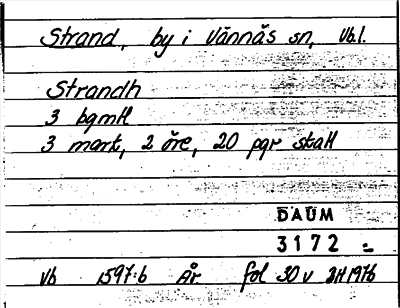 Strand, by i Vännäs sn, Vb.l.
Strandh
3 bgmtl
3 mark, 2 öre, 20 pgr skatt
DAUM
3172
Vb 1597:6 År fol 30 v BH 1976